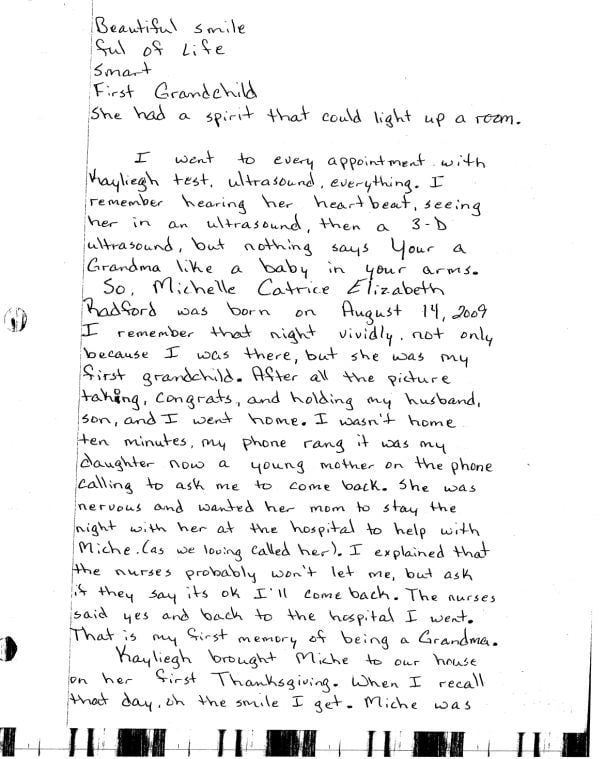 Beautiful smile
ful of Life
Smart
First Grandchild
She had a spirit that could light up a room.
I went to every appointment with
Kayliegh test, ultrasound, everything. I
remember hearing her heartbeat, seeing
her in an ultrasound, then a 3-D
ultrasound, but nothing says Your a
Grandma like a baby in your arms.
So, Michelle Catrice Elizabeth
Radford was born on August 14, 2009
I remember that night vividly, not only
because I was there, but she was my
first grandchild. After all the picture
taking, congrats, and holding my husband,
son, and I went home. I wasn't home
ten minutes, my phone rang it was my
daughter now a young mother on the phone
calling to ask me to come back. She was
nervous and wanted her mom to stay the
night with her at the hospital to help with
Miche. (as we loving called her). I explained that
the nurses probably won't let me, but ask
if they say its ok I'll come back. The nurses
said yes and back to the hospital I went.
That is my first memory of being a Grandma.
Kayliegh brought Miche to our house
on her first Thanksgiving. When I recall
that day, oh the smile I get. Miche was